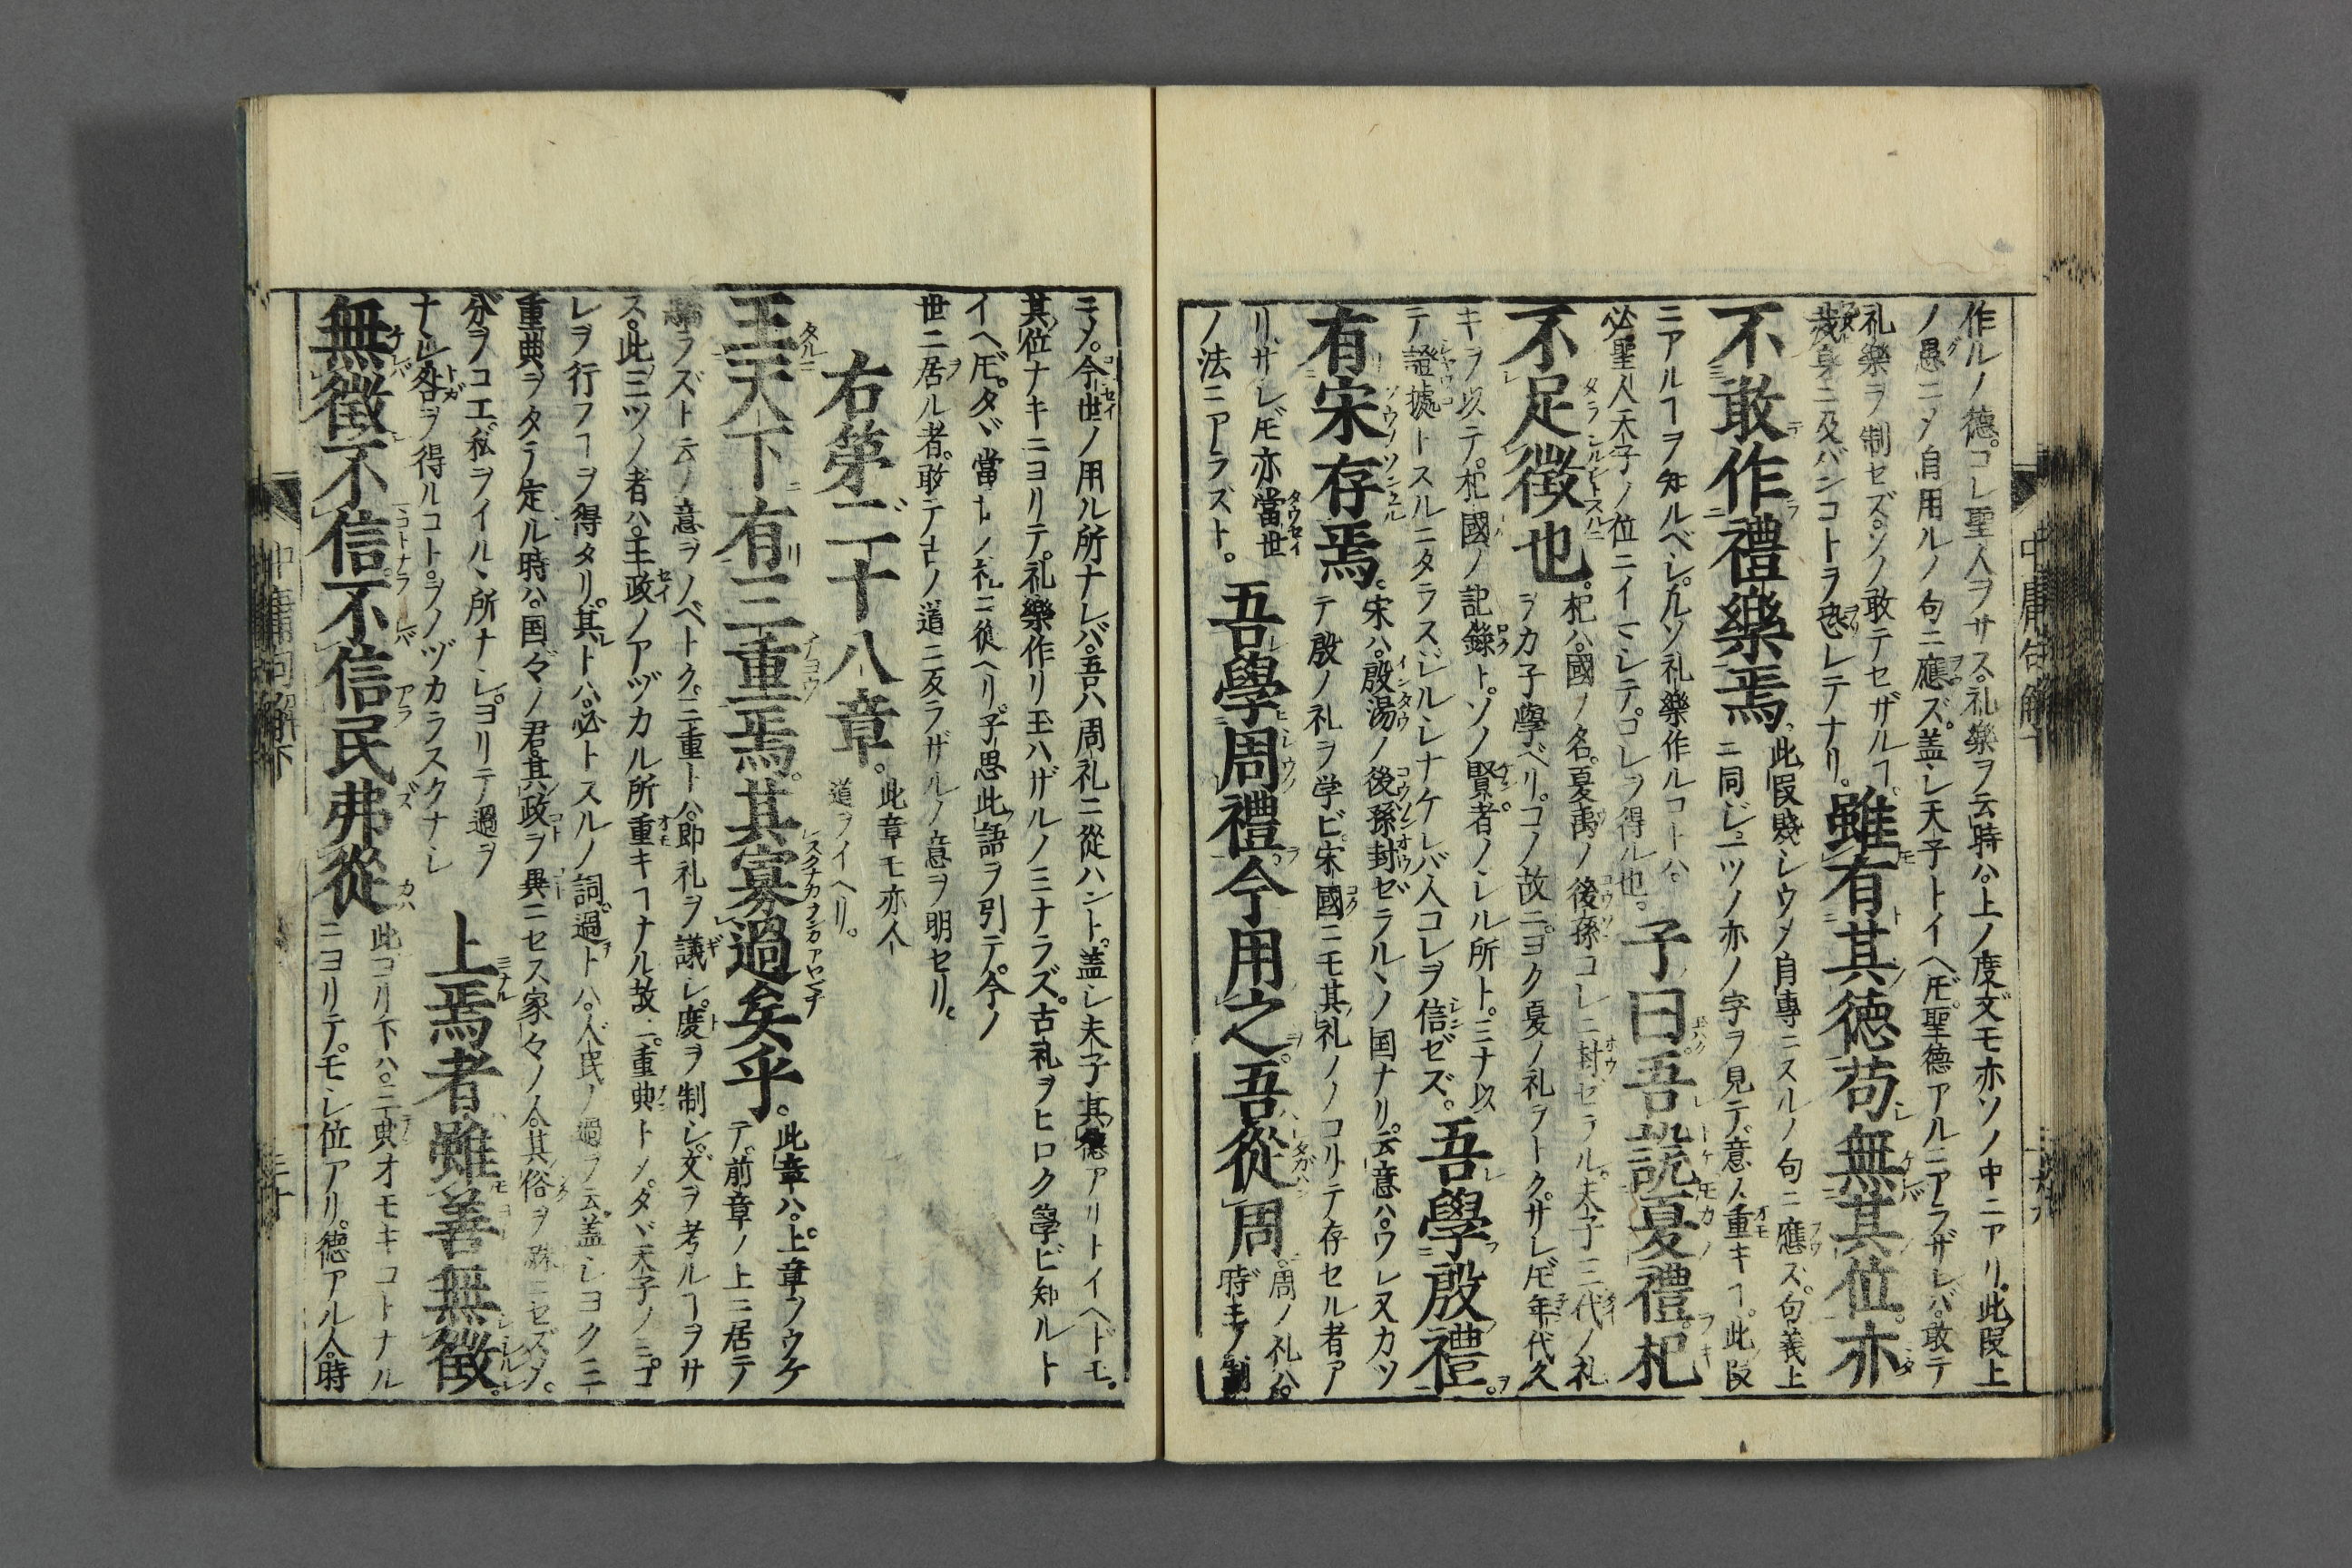 作ルノ德。コレ聖人ヲサス。礼樂ヲ云時ハ。上ノ度文モ亦ソノ中ニアリ。此段上
ノ愚ニメ自用ルノ句ニ應ズ。蓋シ天子トイヘ𪜈。聖德アルニアラザレバ。敢テ
礼樂ヲ制セズ。ソノ敢テセザルヿ。
裁身ニ及バンコトヲ恐レテナリ。雖有其德苟無其位。亦
不敢作禮樂焉。此段賤シウメ自專ニスルノ句ニ應ズ。句義上
ニ同ジ。二ツノ亦ノ字ヲ見テ意ノ重キヿ。此段
ニアルヿヲ知ルベシ。凡ソ礼樂作ルコトハ。
必聖人天子ノ位ニイマシテ。コレヲ得ル也。子曰吾説夏禮。杞
不足徴也。杞ハ。國ノ名。夏禹ノ後孫コレニ封ゼラル。夫子三代ノ礼
ヲカ子學ベリ。コノ故ニ。ヨク夏ノ礼ヲトク。サレ𪜈。年代久
キヲ以テ。杞國ノ記録ト。ソノ賢者ノシル所ト。ミナ以
テ證據トスルニタラズ。シルシナケレバ。人コレヲ信ゼズ。吾學殷禮。
有宋存焉。宋ハ。殷湯ノ後孫封ゼラルヽノ国ナリ。云意ハ。ワレ又カツ
テ殷ノ礼ヲ学ビ。宋國ニモ其礼ノノコリテ存セル者ア
リ。サレ𪜈亦當世
ノ法ニアラズト。吾學周禮。今用之。吾從周。周ノ礼ハ。
時王ノ制
ニメ。今世ノ用ル所ナレバ。吾ハ周礼ニ從ハント。蓋シ夫子其德アリトイヘドモ。
其位ナキニヨリテ。礼樂作リ玉ハザルノミナラズ。古礼ヲヒロク學ビ知ルト
イヘ𪜈。タヾ當世ノ礼ニ從ヘリ。子思此語ヲ引テ。今ノ
世ニ居ル者。敢テ古ノ道ニ反ラザルノ意ヲ明セリ。
右第二十八章。此章モ亦人
道ヲイヘリ。
王天下有三重焉。其寡過矣乎。此章ハ。上章ヲウケ
テ。前章ノ上ニ居テ
驕ラズト云ノ意ヲノベトク。三重トハ。即礼ヲ議シ。度ヲ制シ。文ヲ考ルヿヲサ
ス。此三ツノ者ハ。王政ノアヅカル所重キヿナル故ニ。重典トメ。タヾ天子ノミ。コ
レヲ行フヿヲ得タリ。其トハ。必トスルノ詞。過トハ。人民ノ過ヲ云。蓋シヨク三
重典ヲタテ定ル時ハ。国々ノ君其政ヲ異ニセス。家々ノ人其俗ヲ殊ニセズメ。
分ヲコエ。私ヲイルヽ所ナシ。ヨリテ過ヲ
ナシ。咎ヲ得ルコト。ヲノヅカラスクナシ
上焉者雖善無徴。
無徴不信。不信民弗從
此ヨリ下ハ。三典オモキコトナル
ニヨリテ。モシ位アリ。德アル人。時
中庸句解下
中庸句解下
三十